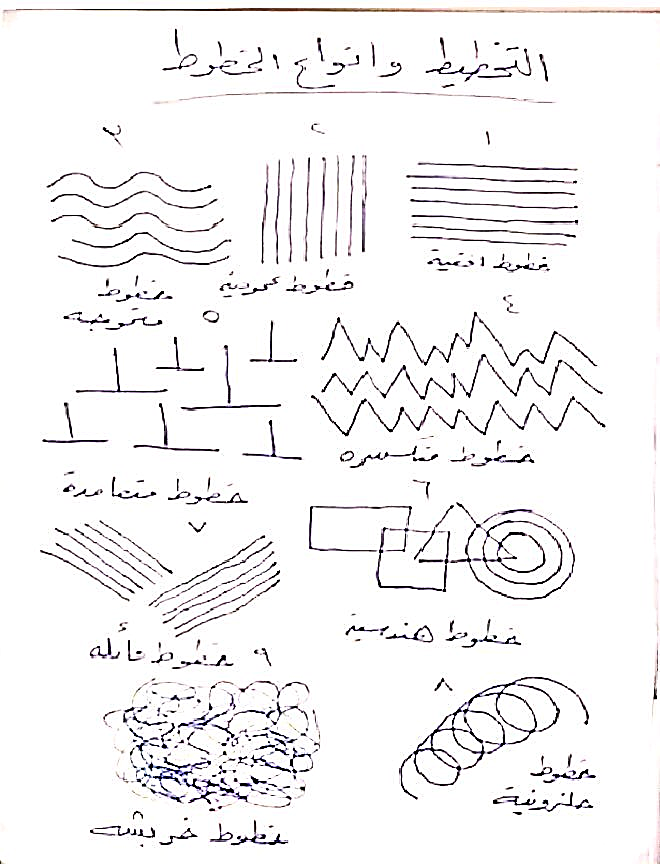 التخطيط وانواع الخطوط
١
خطوط افقية
٢
خطوط عمودية
٣
خطوط
متموجه
٤
خطوط متكسره
٥
خطوط متعامدة
٦
خطوط هندسية
٧
خطوط مائله
٨
خطوط
حلزونية
٩
خطوط خربشه